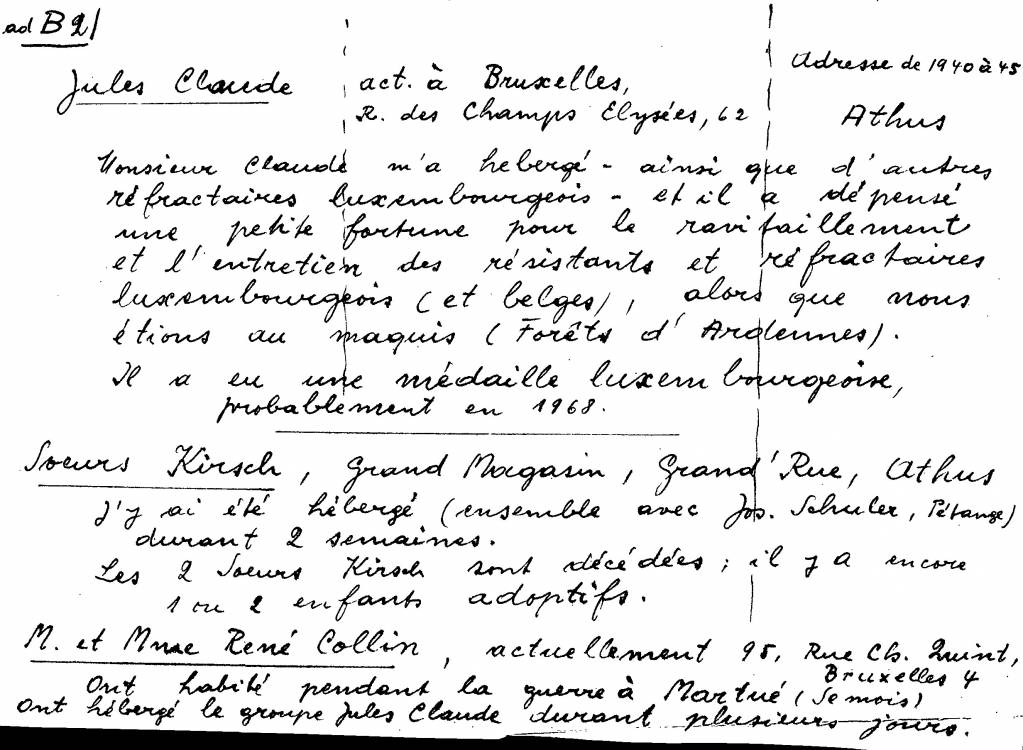 ad B 2/
Jules Claude act. à Bruxelles, Adresse de 1940 à 45
R. des Champs Elysées, 62 Athus
Monsieur Claude m'a hebergé - ainsi que d'autres
réfractaires luxembourgeois - et il a dépensé
une petite fortune pour le ravitaillement
et l'entretien des résistants et réfractaires
luxembourgeois (et belges), alors que nous
étions au maquis (Forêts d'Ardennes).
Il a eu une médaille luxembourgeoise,
probablement en 1968.
Soeurs Kirsch, Grand Magasin, Grand'Rue, Athus
J'y ai été hébergé (ensemble avec Jos. Schuler, Pétange)
durant 2 semaines.
Les 2 Soeurs Kirsch sont décédées; il y a encore
1 ou 2 enfants adoptifs.
M. et Mme René Collin, actuellement 95, Rue Ch. Quint,
Bruxelles 4
Ont habité pendant la guerre à Martué (Semois)
Ont hébergé le groupe Jules Claude durant plusieurs jours.